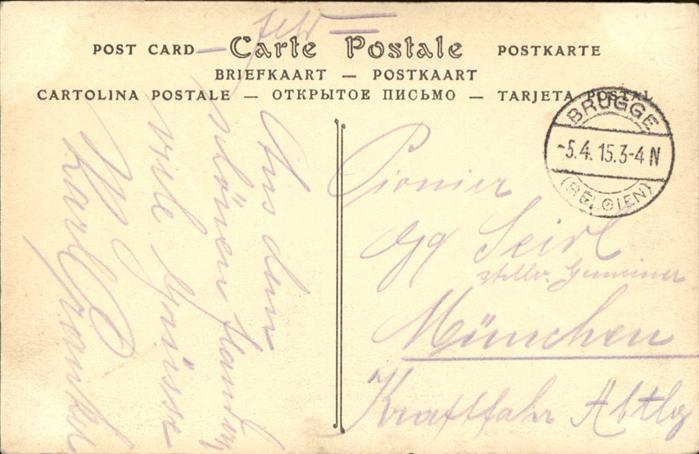 Feld
POST CARD — Carte Postale POSTKARTE
BRIEFKAART — POSTKAART
CARTOLINA POSTALE — ОТКРЫТОЕ ПИСЬМО — TARJETA POSTAL
BRUGGE
-5.4.15.3-4 N
(BELGIEN)
Aus dem
schönen Flandern
viele Grüsse
Karl
Pionier
Gg Seidl
stellv. Gemeiner
München
Kraftfahr Abtlg